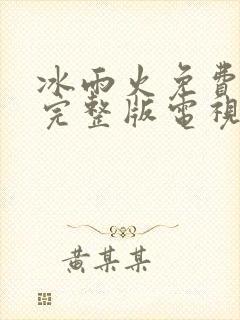 冰雨火免費
完整版電視
黃某某